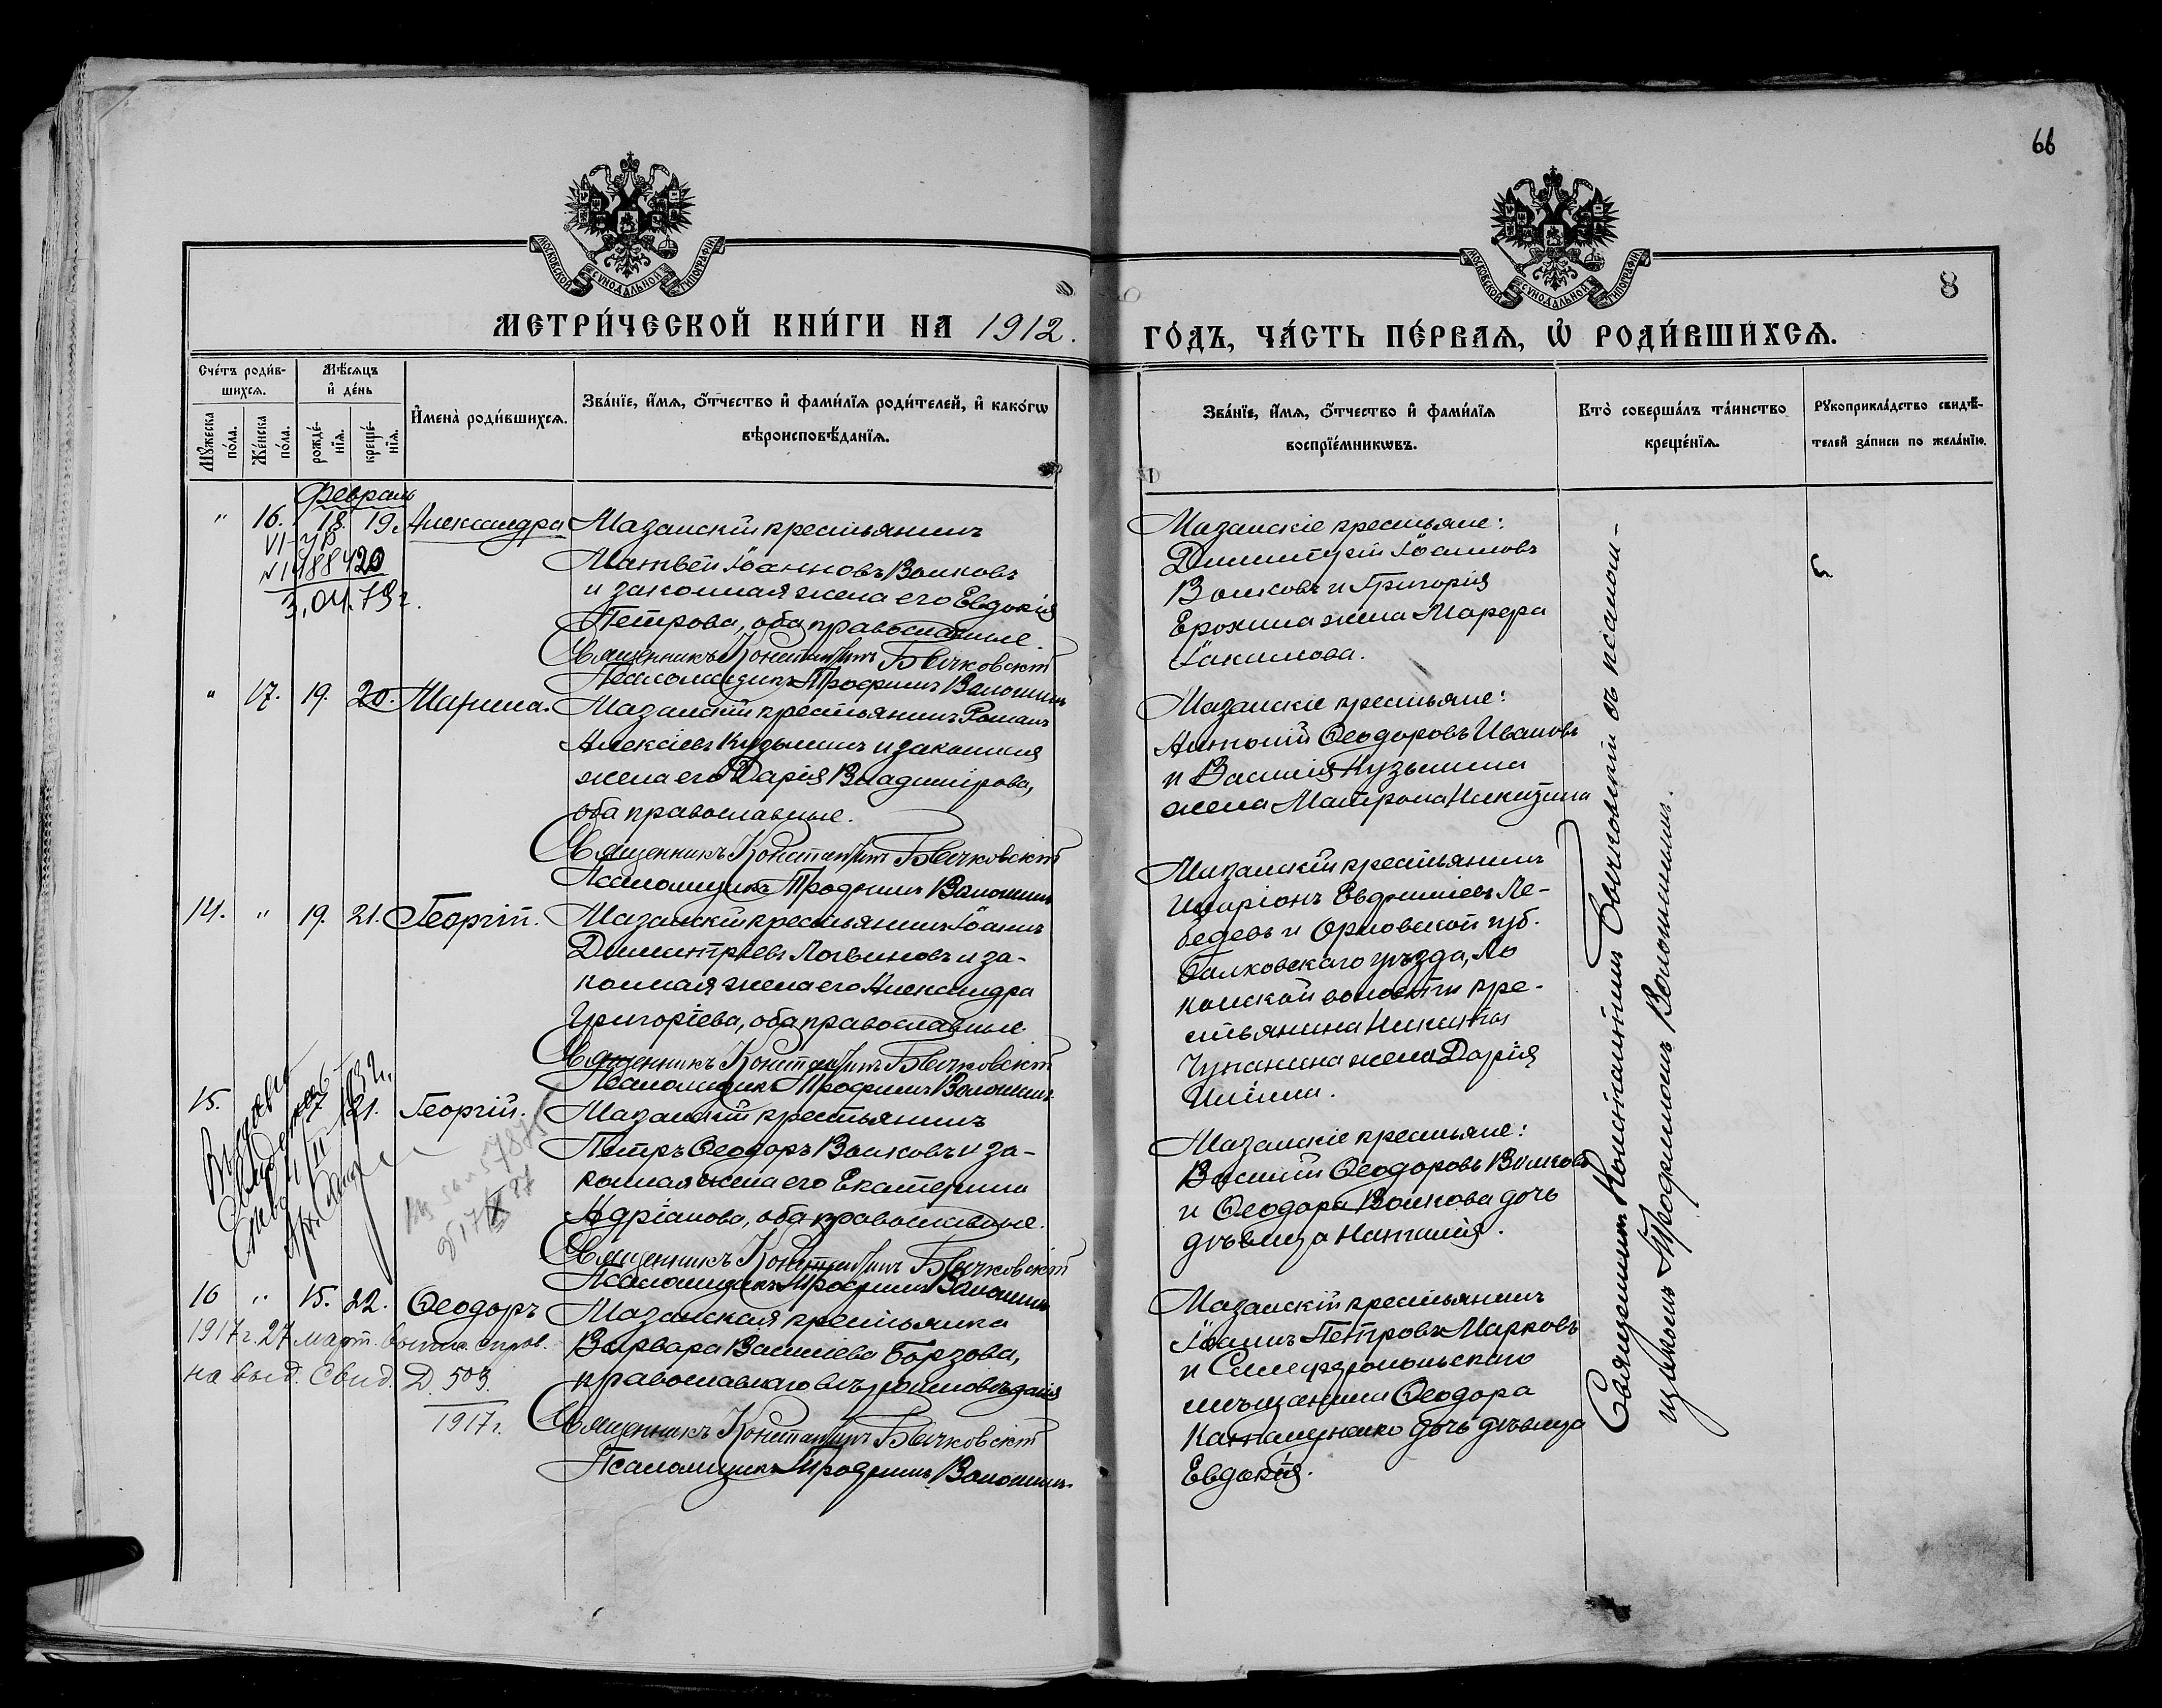 66
МОСКОВСКОЙ СѴНОДАЛЬНОЙ ТИПОГРАФІИ
МОСКОВСКОЙ СѴНОДАЛЬНОЙ ТИПОГРАФІИ
8
МЕТРИ́ЧЕСКОЙ КНИ́ГИ НА 1912.
ГО́ДЪ, ЧА́СТЬ ПЕ́РВАѦ, Ѡ҆ РОДИ́ВШИХСѦ.
Сче́тъ роди́в-
шихсѧ.
Мѣ́сѧцъ
и҆ де́нь
Мꙋ́жеска
по́ла.
Же́нска
по́ла.
рожде́-
нїѧ.
креще́-
нїѧ.
И҆мена̀ роди́вшихсѧ.
Зва́нїе, и҆́мѧ, ѻ҆́тчество и҆ фами́лїѧ роди́телей, и҆ како́гѡ
вѣроисповѣ́данїѧ.
Зва́нїе, и҆́мѧ, ѻ҆́тчество и҆ фами́лїѧ
воспрїе́мникѡвъ.
Кто̀ соверша́лъ та́инство
креще́нїѧ.
Рꙋкоприкла́дство свидѣ́-
телей за́писи по жела́нїю.
Февраль
" 16. 18. 19. Александра
VI-ЯБ
N 1488420
3.04.79 г.
Мазанскій крестьянинъ
Матвей Іоанновъ Волковъ
и законная жена его Евдокія
Петрова, оба православные.
Священникъ Константинъ Бычковскій
Псаломщикъ Трофимъ Волошинъ
Мазанскіе крестьяне:
Димитрій Іоанновъ
Волковъ и Григорія
Ерохина жена Марфа
Іакимова.
" 17. 19. 20. Марина.
Мазанскій крестьянинъ Романъ
Алексіевъ Кузьминъ и законная
жена его Дарія Владимірова,
оба православные.
Священникъ Константинъ Бычковскій
Псаломщикъ Трофимъ Волошинъ
Мазанскіе крестьяне:
Антоній Ѳеодоровъ Ивановъ
и Василія Кузьмина
жена Матрона Никитина
14. " 19. 21. Георгій.
Мазанскій крестьянинъ Іоаннъ
Димитріевъ Логвиновъ и за-
конная жена его Александра
Григоріева, оба православные.
Священникъ Константинъ Бычковскій
Псаломщикъ Трофимъ Волошинъ
Мазанскій крестьянинъ
Иларіонъ Евфиміевъ Ле-
бедевъ и Орловской губ.
Болховскаго уѣзда, Ло
конской волости кре-
стьянина Никиты
Чупанина жена Дарія
Иліина.
15. 21. Георгій.
Мазанскій крестьянинъ
Петръ Ѳеодоръ Волковъ и за-
конная жена его Екатерина
Адріанова, оба православные.
Священникъ Константинъ Бычковскій
Псаломщикъ Трофимъ Волошинъ
Мазанскіе крестьяне:
Василій Ѳеодоровъ Волковъ
и Ѳеодора Волкова дочь
дѣвица Наталія.
16 " 15. 22. Ѳеодоръ
1917 г. 27 март. выпис. справ.
на выд. Свид. Д. 503.
1917 г.
Мазанская крестьянка
Варвара Василіева Борзова,
православнаго вѣроисповѣданія
Священникъ Константинъ Бычковскій
Псаломщикъ Трофимъ Волошинъ.
Мазанскій крестьянинъ
Іоаннъ Петровъ Марковъ
и Симферопольскаго
мѣщанина Ѳеодора
дочь дѣвица
Евдокія.
Священникъ Константинъ Бычковскій съ псалом-
щикомъ Трофимомъ Волошинымъ.